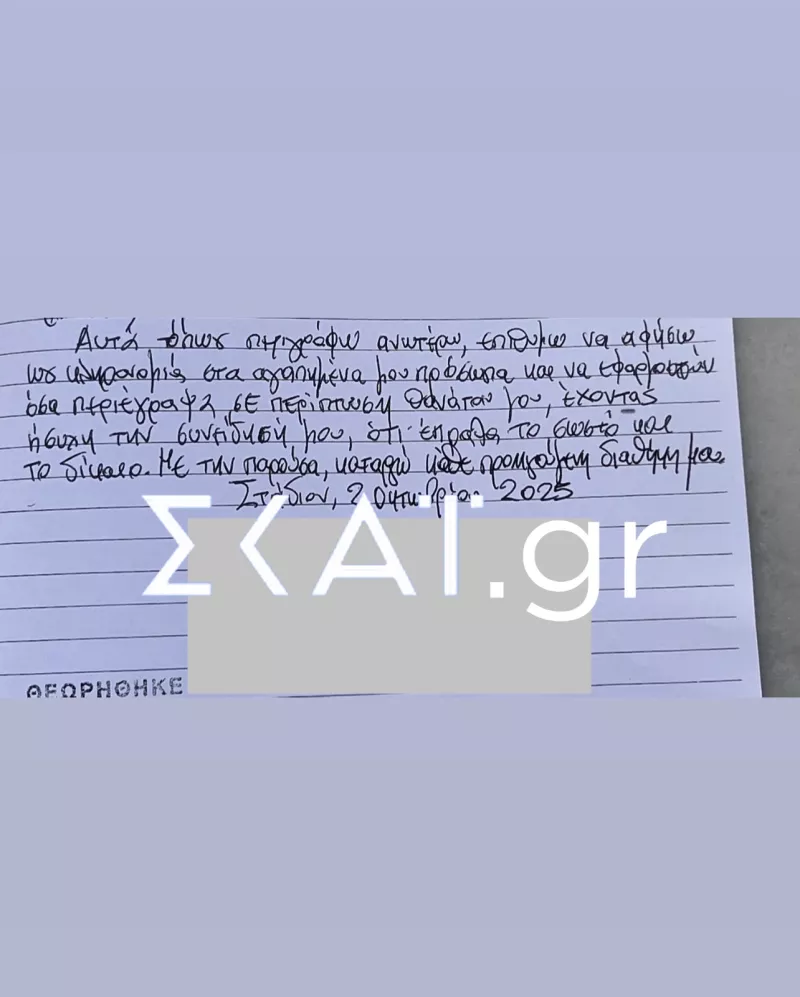 Αυτά όπως περιγράφω ανωτέρω, επιθυμώ να αφήσω
ως κληρονομιά στα αγαπημένα μου πρόσωπα και να εφαρμοστούν
όσα περιέγραψα, σε περίπτωση θανάτου μου, έχοντας
ήσυχη την συνείδησή μου, ότι έπραξα το σωστό και
το δίκαιο. Με την παρούσα, καταργώ κάθε προηγούμενη διαθήκη μου.
2 Οκτωβρίου 2025
ΣΚΑΪ.gr
ΘΕΩΡΗΘΗΚΕ